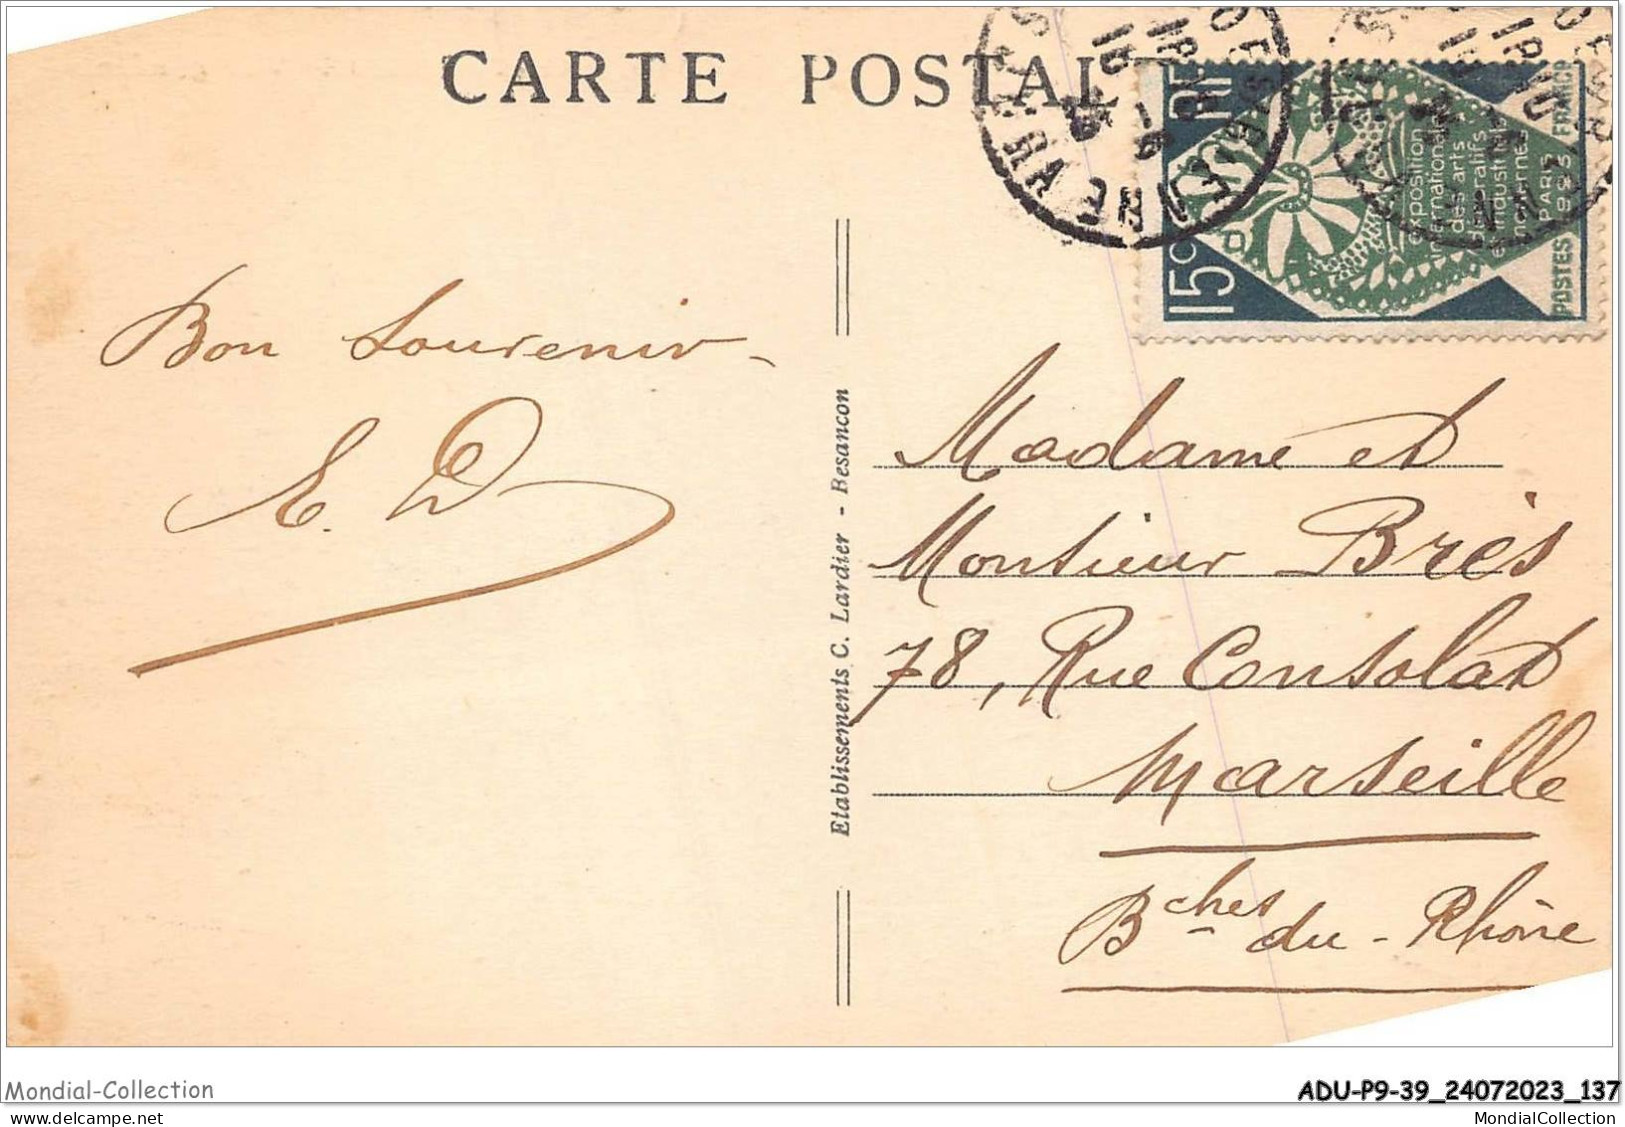 CARTE POSTAL
RF
15c
exposition
internationale
des arts
décoratifs
et industriels
modernes
PARIS
1925
POSTES FRANCE
Bon Souvenir
E. D
Madame et
Monsieur Brès
78, Rue Consolat
Marseille
Bches du - Rhône
Etablissements C. Lardier - Besançon
Mondial-Collection
ADU-P9-39_24072023_137
delcampe.net
MondialCollection